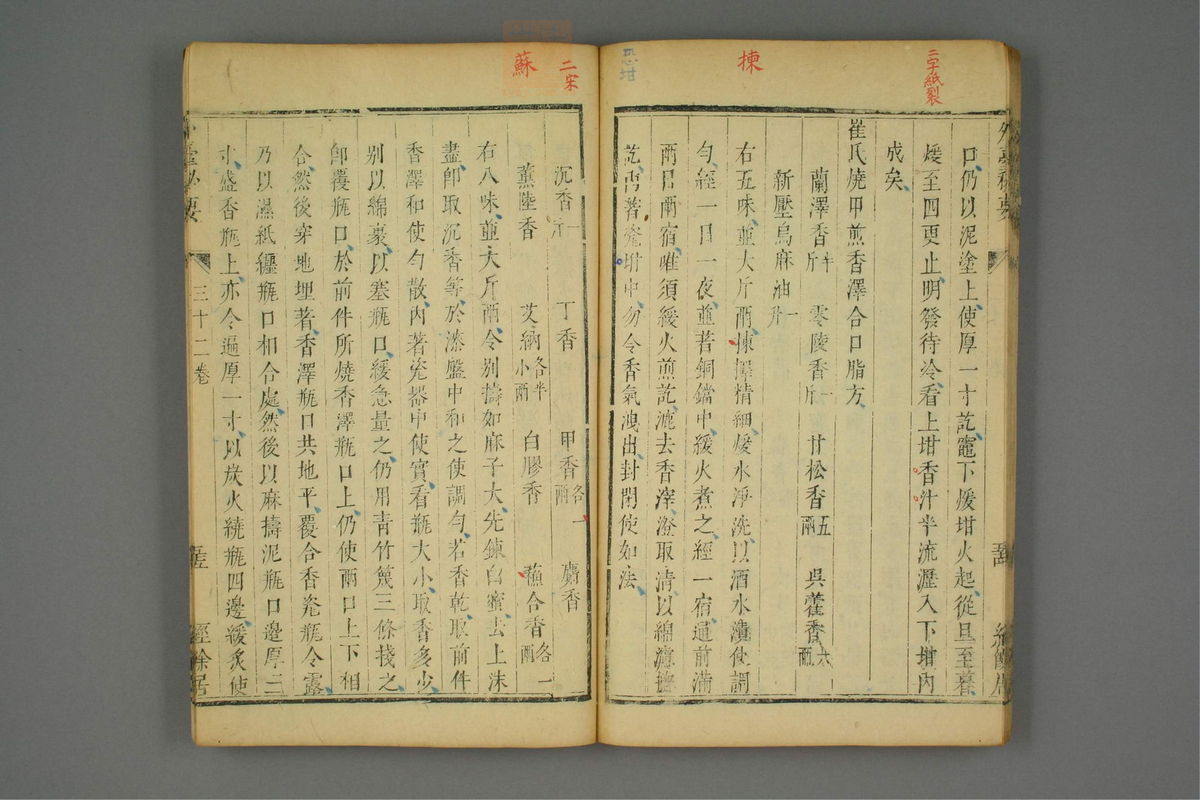 二字紙裂
揀
恐坩
口仍以泥塗上使厚一寸訖竈下煖坩火起從旦至暮
煖至四更止明發待冷看上坩香汁半流瀝入下坩內
成矣
崔氏燒甲煎香澤合口脂方
蘭澤香半斤 零陵香一斤 甘松香五兩 吳藿香六兩
新壓烏麻油一升
右五味並大斤兩揀擇精細煖水淨洗以酒水漬使調
勻經一日一夜並著銅鐺中緩火煮之經一宿通前滿
兩日兩宿唯須緩火煎訖漉去香滓澄取清以綿濾
訖內著瓷坩中勿令香氣洩出封閉使如法
二宋
蘇
沉香一斤 丁香 甲香各一兩 麝香
薰陸香 艾納各半小兩 白膠香 蘇合香各一兩
右八味並大斤兩令別擣如麻子大先鍊白蜜去上沫
盡卽取沉香等於漆盤中和之使調勻若香乾取前件
香澤和使勻散內著瓷器中使實看瓶大小取香多少
別以綿裹以塞瓶口緩急量之仍用青竹篾三條栈之
卽覆瓶口於前件所燒香澤瓶口上仍使兩口上下相
合然後穿地埋著香澤瓶口共地平覆合香瓷瓶令露
乃以濕紙纏瓶口相合處然後以麻擣泥瓶口邊厚二
寸盛香瓶上亦令遍厚一寸以炭火繞瓶四邊緩炙使
三十二卷
經餘居